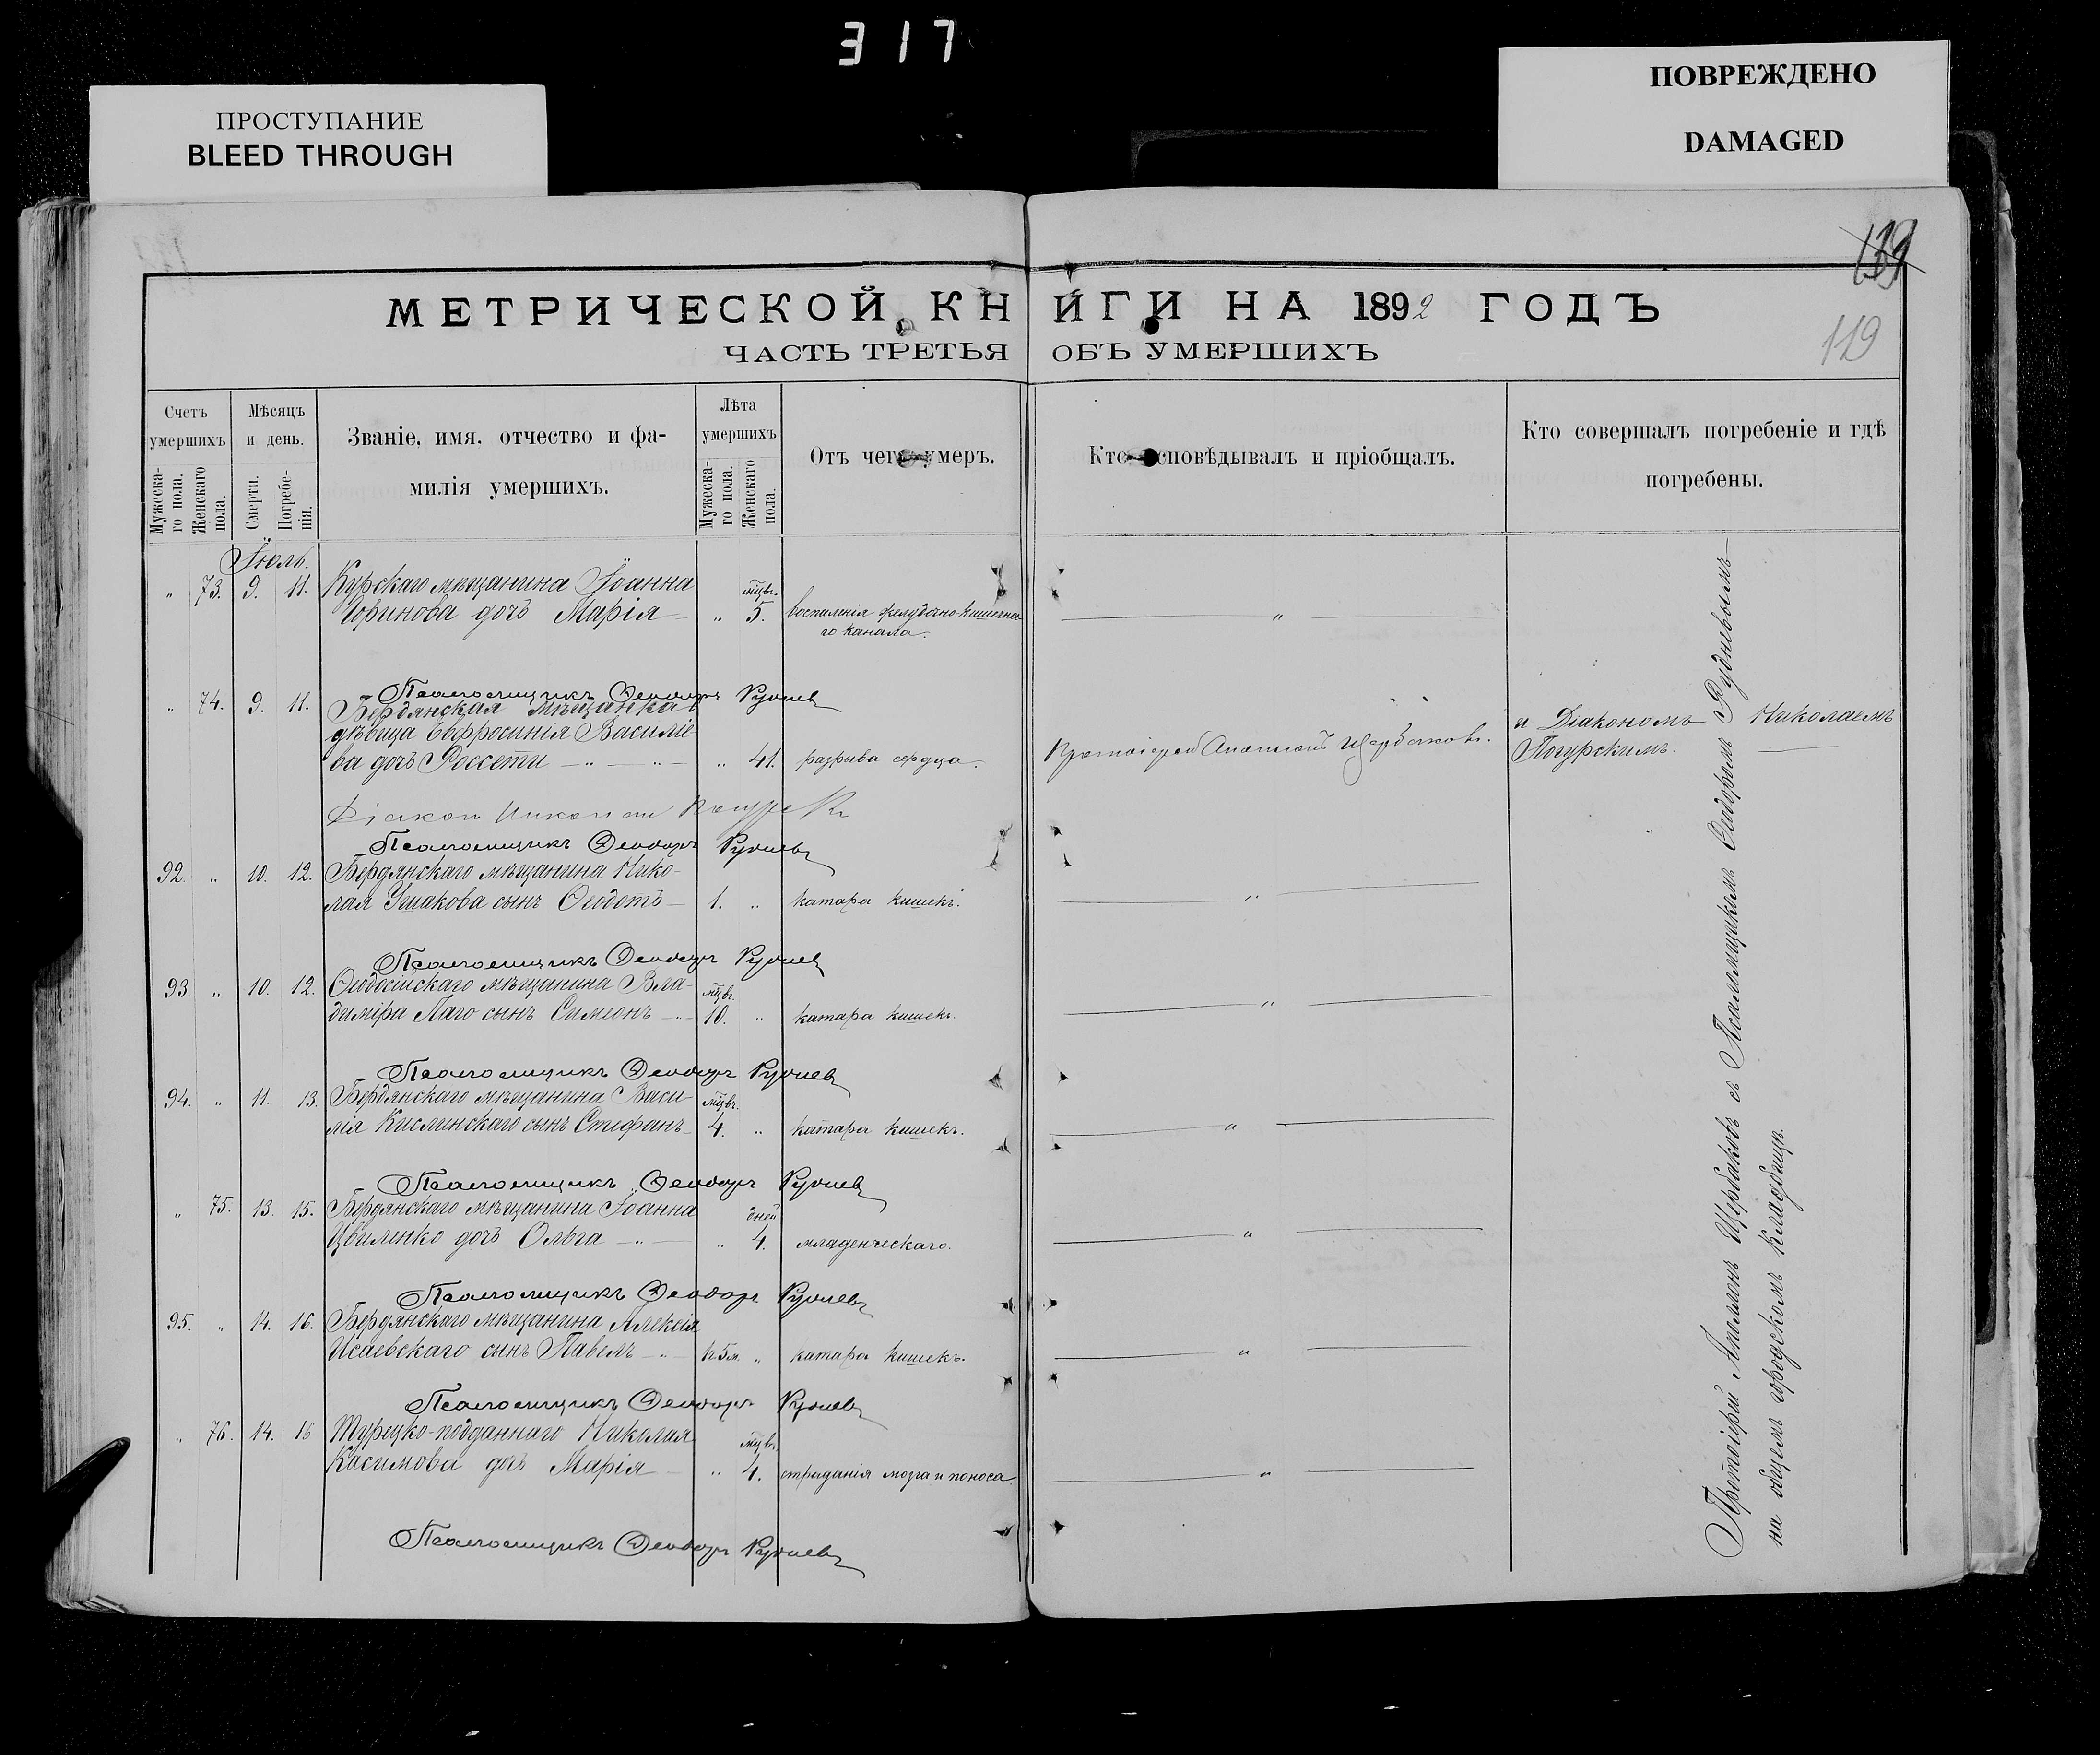 317
ПРОСТУПАНИЕ
BLEED THROUGH
ПОВРЕЖДЕНО
DAMAGED
119
МЕТРИЧЕСКОЙ КНИГИ НА 1892 ГОДЪ
ЧАСТЬ ТРЕТЬЯ ОБЪ УМЕРШИХЪ
119
Счетъ умершихъ
Мужеска-го пола.
Женскаго пола.
Мѣсяцъ и день.
Смерти.
Погребе-нія.
Званіе, имя, отчество и фа-
милія умершихъ.
Лѣта умершихъ
Мужеска-го пола.
Женскаго пола.
Отъ чего умеръ.
Кто исповѣдывалъ и пріобщалъ.
Кто совершалъ погребеніе и гдѣ
погребены.
Іюль.
" 73. 9. 11. Курскаго мѣщанина Іоанна мцвъ.
дочь Марія " 5. воспаленія желудочно-кишечна
го канала. "
Псаломщикъ Ѳеодоръ Руднев
" 74. 9. 11. Бердянская мѣщанка
дѣвица Евфросинія Василіе
ва дочь Россети " 41. разрыва сердца. Протоіерей Аполлонъ Щербаковъ.
и Діакономъ Николаемъ
Погурскимъ.
Діакон Николай
Псаломщикъ Ѳеодоръ Руднев
92. " 10. 12. Бердянскаго мѣщанина Нико-
лая Ушакова сынъ Ѳеодотъ 1. " катара кишекъ. "
Псаломщикъ Ѳеодоръ Руднев
93. " 10. 12. Ѳеодосійскаго мѣщанина Вла- мцвъ.
диміра Лаго сынъ Симеонъ 10. " катара кишекъ. "
Псаломщикъ Ѳеодоръ Руднев
94. " 11. 13. Бердянскаго мѣщанина Васи мцвъ.
лія Кислинскаго сынъ Стефанъ 4. " катара кишекъ. "
Псаломщикъ Ѳеодоръ Руднев
" 75. 13. 15. Бердянскаго мѣщанина Іоанна дней
Цвиленко дочь Ольга " 4. младенческаго. "
Псаломщикъ Ѳеодоръ Руднев
95. " 14. 16. Бердянскаго мѣщанина Алексія
Исаевскаго сынъ Павелъ " катара кишекъ. "
Псаломщикъ Ѳеодоръ Руднев
" 76. 14. 16 Турецко-подданнаго Николая мцвъ.
Касимова дочь Марія " 4. страданія мозга и поноса. "
Псаломщикъ Ѳеодоръ Руднев
Протоіерей Аполлонъ Щербаковъ съ Псаломщикомъ Ѳеодоромъ Рудневымъ
на общемъ городскомъ кладбищѣ.